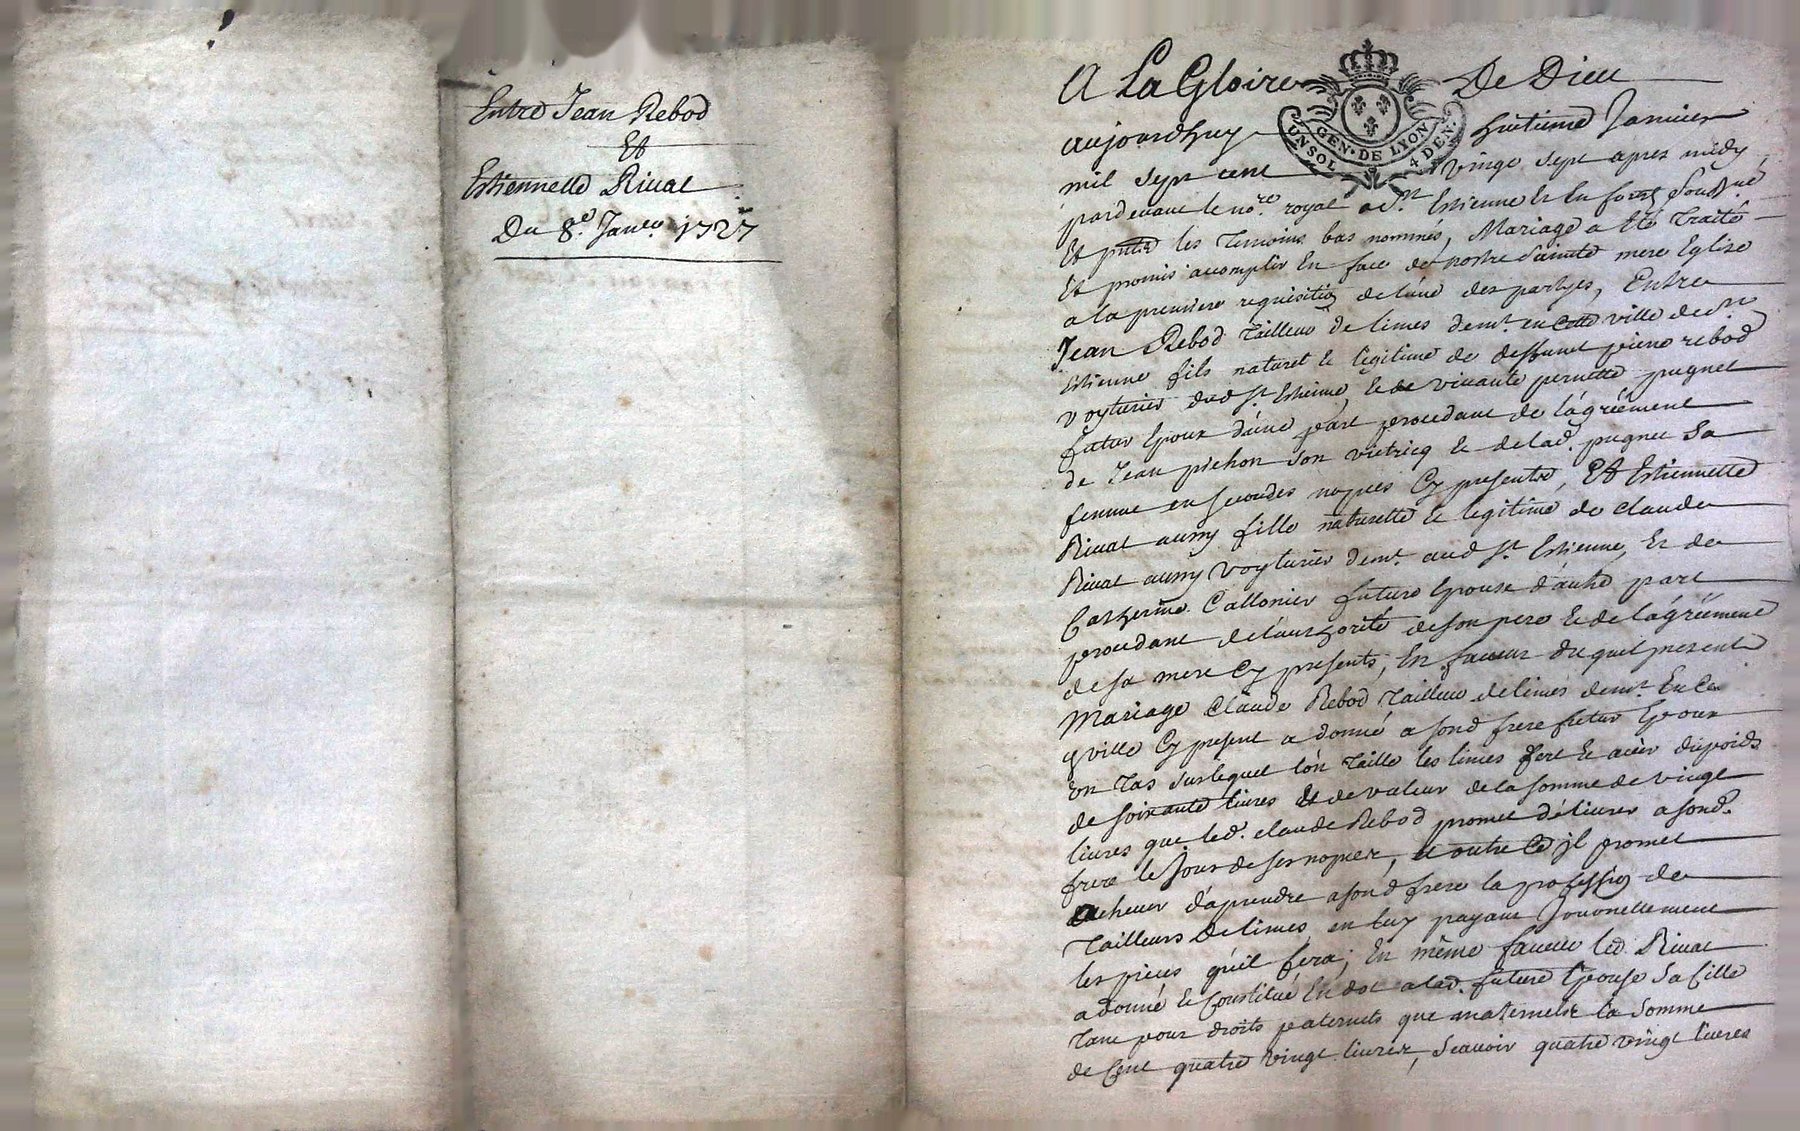 Entre Jean Rebod
Et
Estiennette Riuat
Du 8.e Janer. 1727
A La Gloire De Dieu
GEN. DE LYON
UN SOL 4 DEN.
aujourdhuy huitieme Januier
mil sept cent vingt sept apres midy
pardeuant le nore. royal a St. Estienne en forest soussigné
Et les temoins bas nommés, Mariage a eté traité
Et promis accomplir En face de nostre Sainte mere Eglise
a la premiere requisition de lune des partyes, Entre
Jean Rebod tailleur de limes demt. en cette ville de St.
Estienne fils naturel et legitime de deffunt pierre rebod
voyturier dud St. Estienne, et de viuante pernette pugnet
futur Epoux d'une part procedant de l'agréement
de Jean pichon son vitricq et de lad. pugnet sa
femme en secondes nopces Cy presents, Et Estiennette
Riuat aussy fille naturelle et legitime de claude
Riuat aussy voyturier demt. aud St. Estienne, Et de
Catherine Callonier future Epouse d'autre part
procedant de l'authorité de son pere et de l'agréement
de sa mere Cy presents, En faueur duquel present
Mariage Claude Rebod tailleur de limes demt. En Ce
ville Cy present a donné a sond frere futur Epoux
un tas sur lequel l'on taille les limes fert et acier du poids
de soixante liures et de valeur de la somme de vingt
liures que led. claude Rebod promet déliurer a sond.
frere le jour de ses nopces, et outre Ce jl promet
acheuer d'aprendre a sond frere la profession de
tailleurs de limes en luy payant
les pieces qu'il fera, En même faueur led. Riuat
a donné et Constitué En dot a lad. future Epouse sa fille
tant pour droits paternels que maternels la somme
de Cent quatre vingt liures, scauoir quatre vingt liures